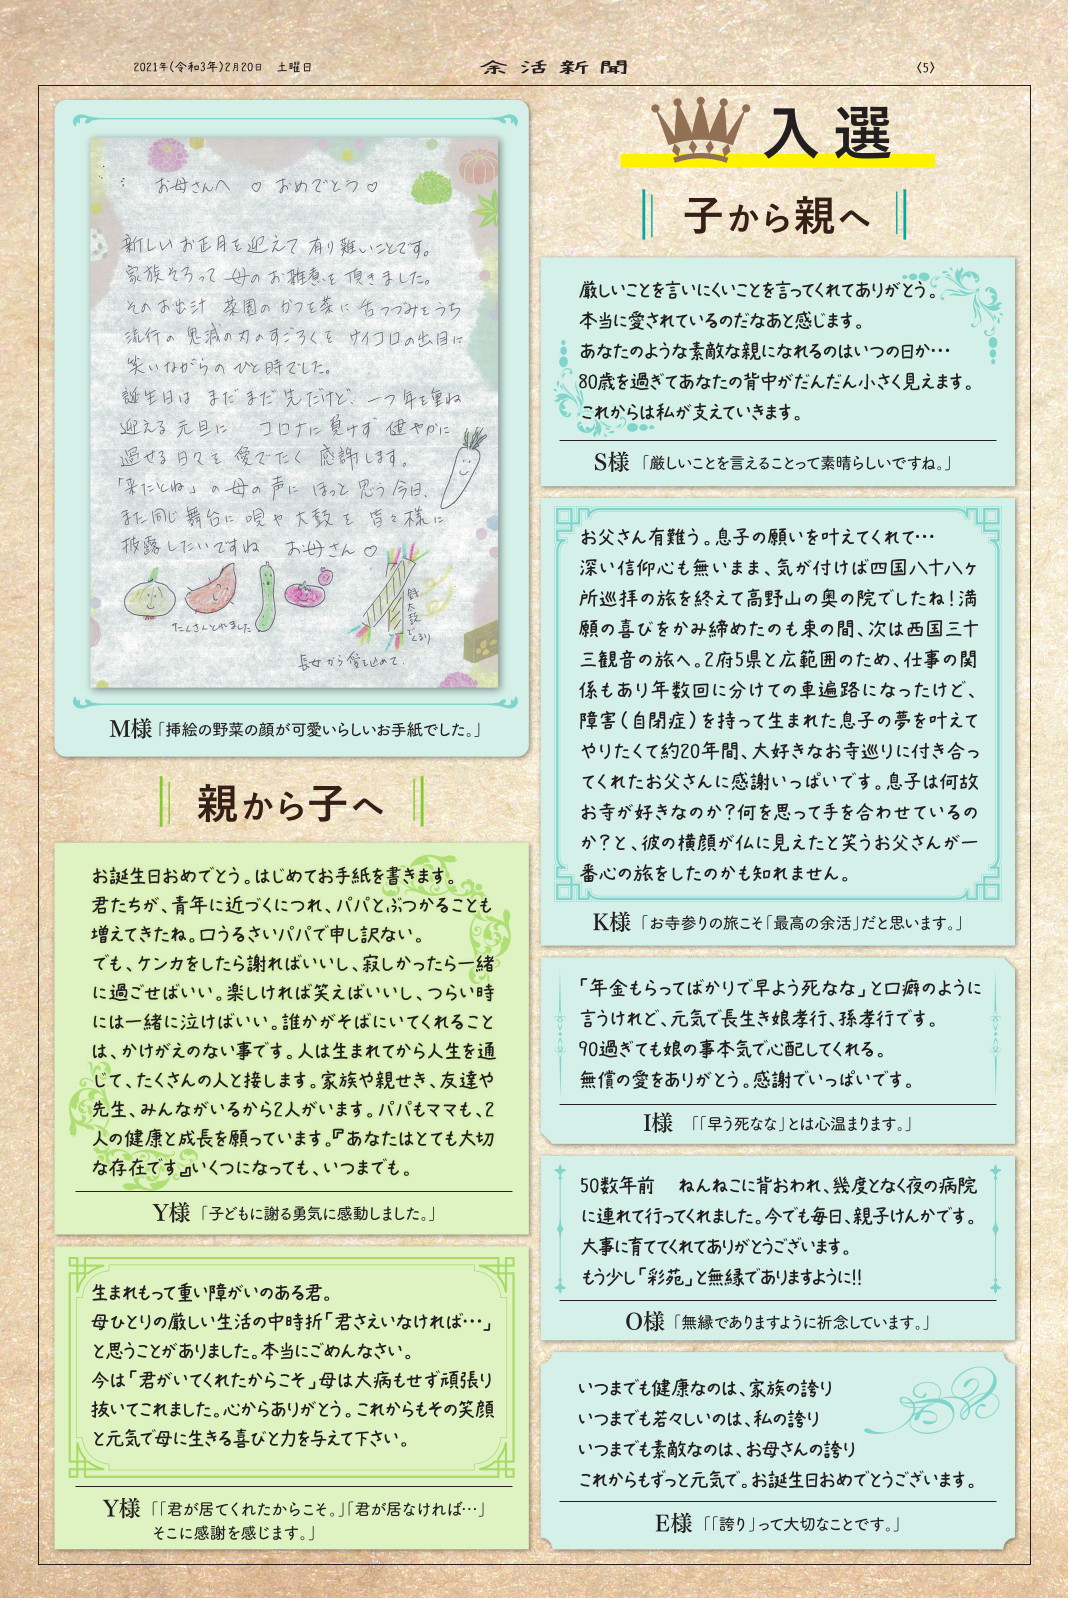 2021年(令和3年)2月20日　土曜日
余活新聞
〈5〉
入選
子から親へ
厳しいことを言いにくいことを言ってくれてありがとう。
本当に愛されているのだなあと感じます。
あなたのような素敵な親になれるのはいつの日か…
80歳を過ぎてあなたの背中がだんだん小さく見えます。
これからは私が支えていきます。
S様「厳しいことを言えることって素晴らしいですね。」
お父さん有難う。息子の願いを叶えてくれて…
深い信仰心も無いまま、気が付けば四国八十八ヶ
所巡拝の旅を終えて高野山の奥の院でしたね!満
願の喜びをかみ締めたのも束の間、次は西国三十
三観音の旅へ。2府5県と広範囲のため、仕事の関
係もあり年数回に分けての車遍路になったけど、
障害(自閉症)を持って生まれた息子の夢を叶えて
やりたくて約20年間、大好きなお寺巡りに付き合っ
てくれたお父さんに感謝いっぱいです。息子は何故
お寺が好きなのか?何を思って手を合わせているの
か?と、彼の横顔が仏に見えたと笑うお父さんが一
番心の旅をしたのかも知れません。
K様「お寺参りの旅こそ「最高の余活」だと思います。」
「年金もらってばかりで早よう死なな」と口癖のように
言うけれど、元気で長生き娘孝行、孫孝行です。
90過ぎても娘の事本気で心配してくれる。
無償の愛をありがとう。感謝でいっぱいです。
I様「「早う死なな」とは心温まります。」
50数年前　ねんねこに背おわれ、幾度となく夜の病院
に連れて行ってくれました。今でも毎日、親子けんかです。
大事に育ててくれてありがとうございます。
もう少し「彩苑」と無縁でありますように!!
O様「無縁でありますように祈念しています。」
いつまでも健康なのは、家族の誇り
いつまでも若々しいのは、私の誇り
いつまでも素敵なのは、お母さんの誇り
これからもずっと元気で。お誕生日おめでとうございます。
E様「「誇り」って大切なことです。」
お母さんへ ♡ おめでとう♡
新しいお正月を迎えて有り難いことです。
家族そろって 母のお雑煮を頂きました。
そのお出汁 菜園のかつを菜に舌つづみをうち
流行の鬼滅の刃のすごろくを サイコロの出目に
笑いながらの ひと時でした。
誕生日は まだまだ先だけど、一つ年を重ね
迎える元旦に コロナに負けず 健やかに
過せる日々を 愛でたく 感謝します。
「来たとね」の母の声に ほっと思う今日、
また同じ舞台に 唄や太鼓を 皆々様に
披露したいですね お母さん♡
たくさんとれました
銭太鼓でくるり
長女から愛を込めて.
M様「挿絵の野菜の顔が可愛いらしいお手紙でした。」
親から子へ
お誕生日おめでとう。はじめてお手紙を書きます。
君たちが、青年に近づくにつれ、パパとぶつかることも
増えてきたね。口うるさいパパで申し訳ない。
でも、ケンカをしたら謝ればいいし、寂しかったら一緒
に過ごせばいい。楽しければ笑えばいいし、つらい時
には一緒に泣けばいい。誰かがそばにいてくれること
は、かけがえのない事です。人は生まれてから人生を通
じて、たくさんの人と接します。家族や親せき、友達や
先生、みんながいるから2人がいます。パパもママも、2
人の健康と成長を願っています。『あなたはとても大切
な存在です』いくつになっても、いつまでも。
Y様「子どもに謝る勇気に感動しました。」
生まれもって重い障がいのある君。
母ひとりの厳しい生活の中時折「君さえいなければ…」
と思うことがありました。本当にごめんなさい。
今は「君がいてくれたからこそ」母は大病もせず頑張り
抜いてこれました。心からありがとう。これからもその笑顔
と元気で母に生きる喜びと力を与えて下さい。
Y様「「君が居てくれたからこそ。」「君が居なければ…」
そこに感謝を感じます。」